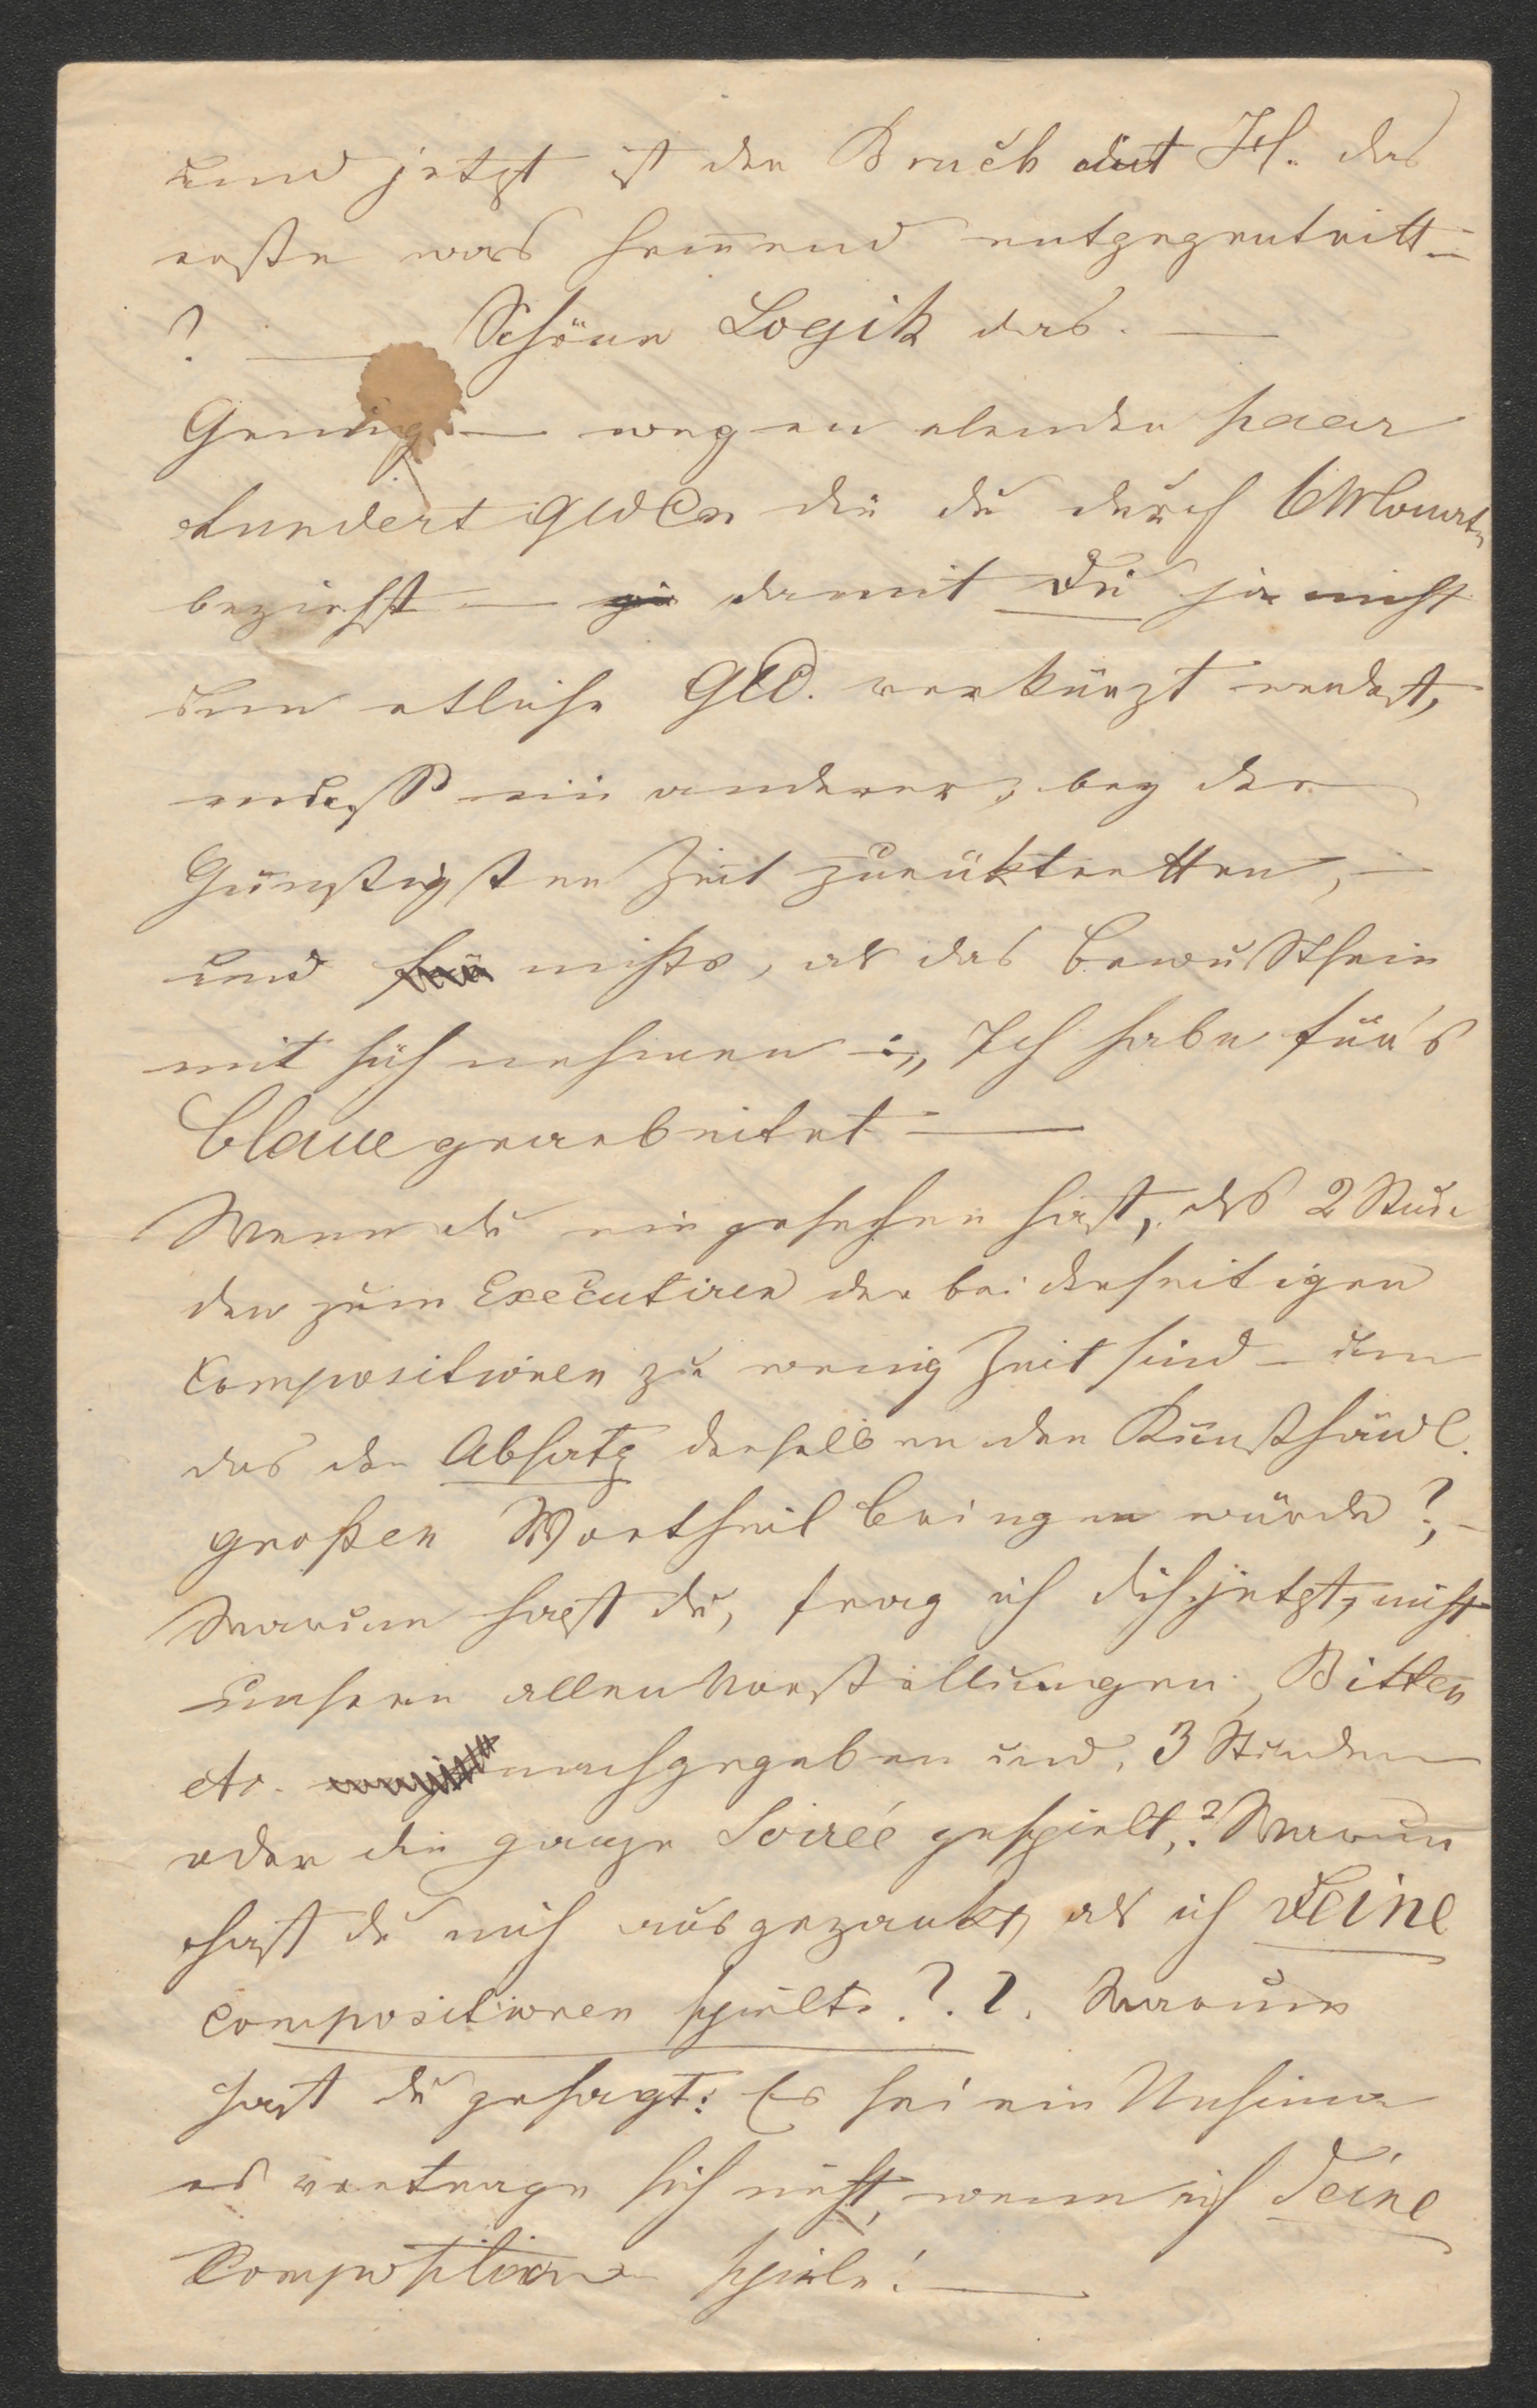 und jetzt ist der Bruch mit H. das
erste was hem̅end entgegentritt –
? — Schöne Logik das. —
Genug — wegen elender paar
hundert Gulden die du durch 6 Monate
beziehst — damit Du ja nicht
um etliche Guld. verkürzt werdest,
muß ein anderer, bey der
Günstigsten Zeit zurüktretten, —
und nichts, als das Bewußtsein
mit sich nehmen –: „Ich habe für's
blaue gearbeitet —
Wenn du eingesehen hast, das 2 Stun
den zum Executiren der beiderseitigen
Compositionen zu wenig Zeit sind – und
das der Absatz derselben der Kunsthändl.
großen Vortheil bringen würde?, –
Warum hast du, frag ich dich jetzt, nicht
unsern allen Vorstellungen, Bitten
etc. nachgegeben und, 3 Stunden
oder die ganze Soireé gespielt,? Warum
hast du mich ausgezankt, als ich Deine
Compositionen spielte?. ?. Warum
hast du gesagt: Es sei ein Unsinn
es vertrage sich nicht, wenn ich Deine
Compositionen spiele! —